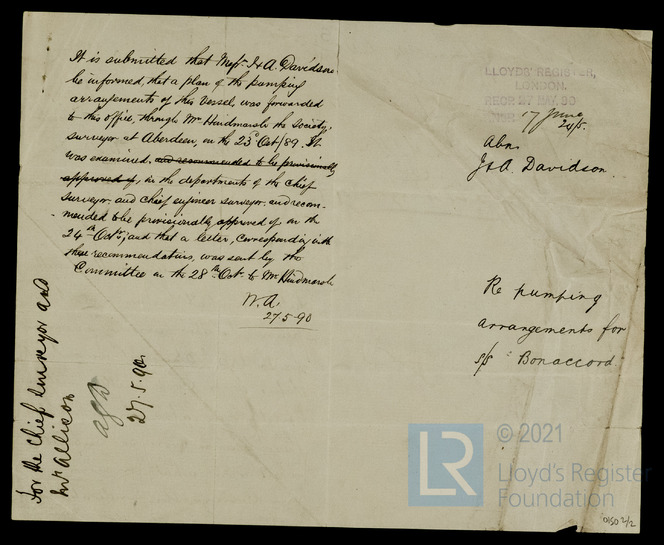 It is submitted that Messrs J & A. Davidson
be informed, that a plan of the pumping
arrangements of this vessel, was forwarded
to this office, through Mr Hindmarsh the Society's
surveyor at Aberdeen, on the 23rd Oct/89. It
was examined, and recommended to be provisionally
approved of, in the departments of the Chief
surveyor, and Chief engineer surveyor, and recom-
-mended to be provisionally approved of on the
24th Octr; and that a letter, corresponding with
these recommendations, was sent by the
Committee on the 28th Oct. to Mr Hindmarsh
W.A.
27-5-90
For the Chief Surveyor and
Mr Allison
27.5.90.
LLOYD'S REGISTER,
LONDON.
RECD 27 MAY. 90
17 June
Abn.
J & A. Davidson.
Re pumping
arrangements for
s/s "Bonaccord"
LR
© 2021
Lloyd's Register
Foundation
0150 2/2